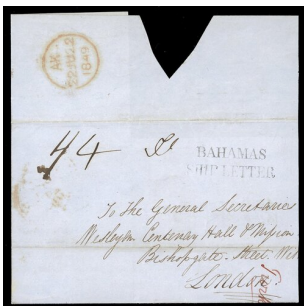 AK
22 JU 22
1849
BAHAMAS
SHIP LETTER
To The General Secretaries
Wesleyan Centenary Hall & Mission
Bishopgate Street
London